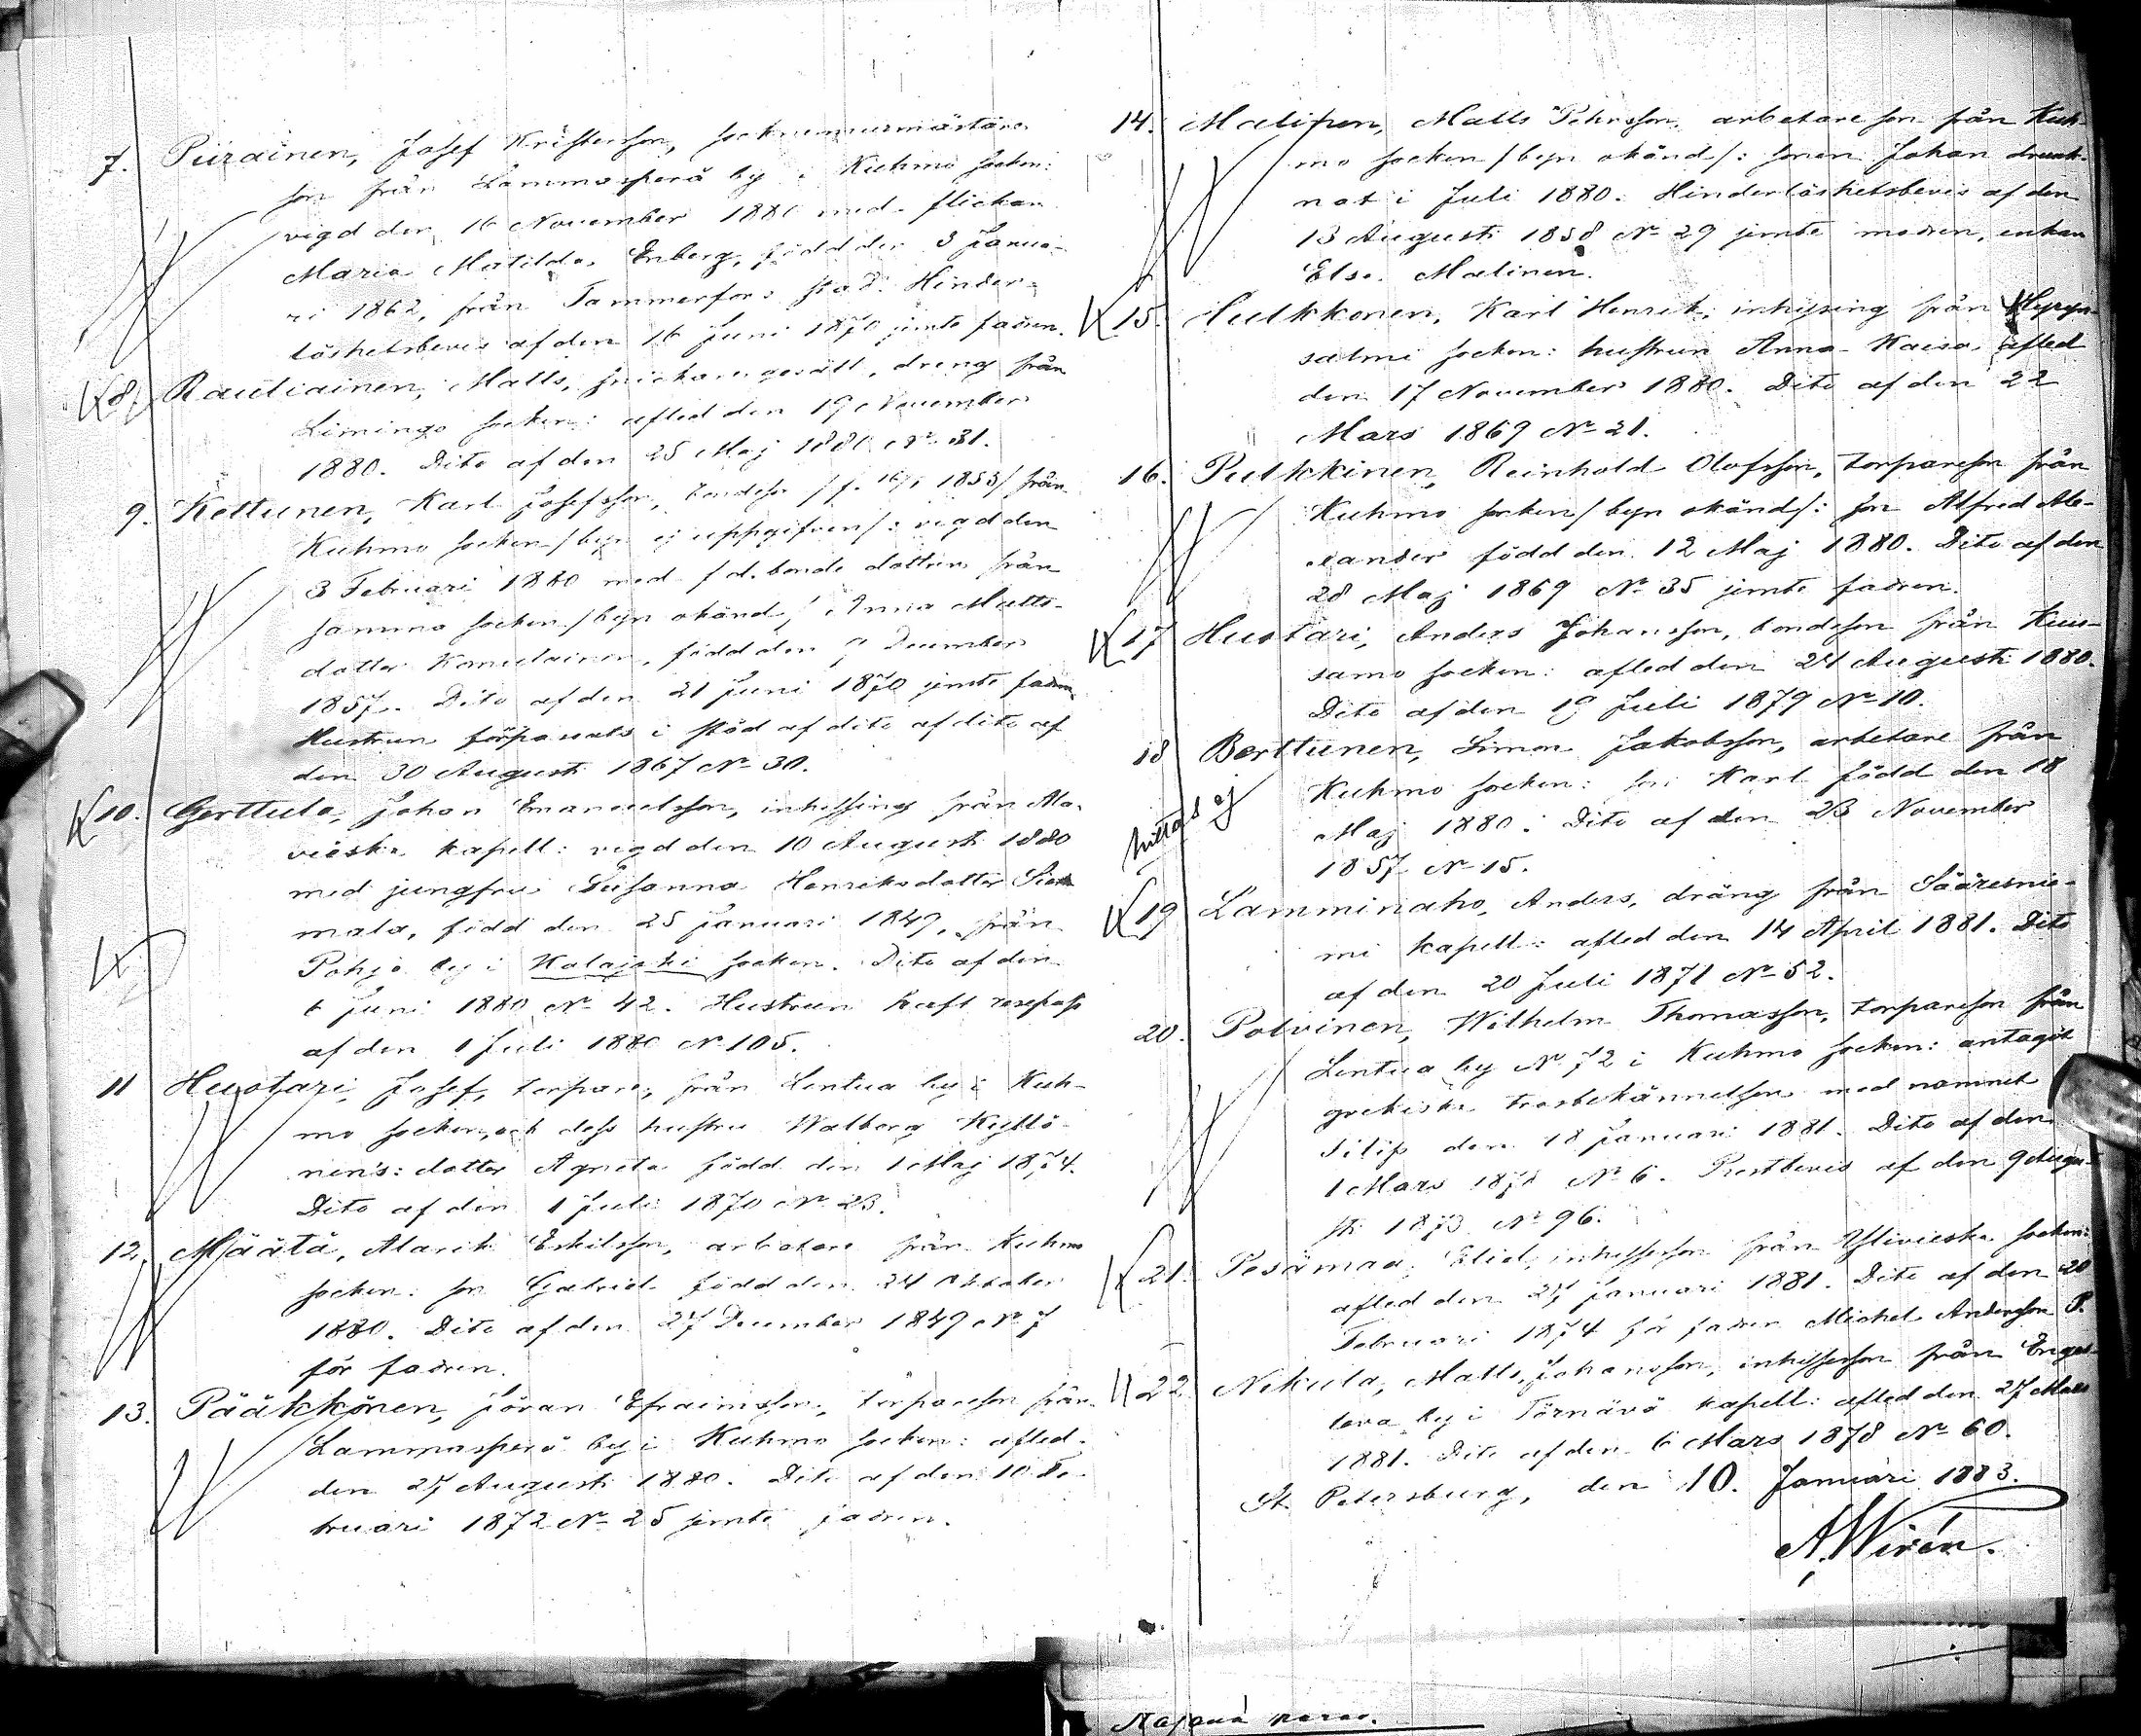 7. Piirainen, Josef Kristersson, socknemurmästare
son från Lammasperä by i Kuhmo socken:
vigd den 16 November 1880 med flickan
Maria Matilda Enberg, född den 3 Janua-
ri 1862, från Tammerfors stad. Hinder-
löshetsbevis af den 16 Juni 1870 jemte fadren.
8. Rautiainen, Matts, snickaregesäll, dreng från
Limingo socken: afled den 19 November
1880. Dito af den 25 Maj 1880 No 31.
9. Kettunen, Karl Josefsson, bondeson /f. 1853/ från
Kuhmo socken /byn ej uppgifven/: vigd den
3 Februari 1880 med f d. bonde dottren från
socken /byn okänd/ Anna Matts-
dotter, född den 9 December
1857. Dito af den 21 Juni 1870 jemte fadren.
Hustrun förpassats i stöd af dito af dito af
den 30 Augusti 1867 No 30.
10. Gerttula, Johan Emanuelsson, inhysing från Ala-
vieska kapell: vigd den 10 Augusti 1880
med jungfru Susanna Henriksdotter
mala, född den 25 Januari 1849, från
Pohjo by i Kalajoki socken. Dito af den
6 Juni 1880 No 42. Hustrun haft resepass
af den 1 Juli 1880 No 105.
11 Huotari, Josef, torpare, från Lentua by i Kuh-
mo socken, och dess hustru Walborg Kyllö-
nen's: dotter Agneta född den 1 Maj 1874.
Dito af den 1 Juli 1870 No 23.
12. Määtä, Alarik Eskilsson, arbetare från Kuhmo
socken: son Gabriel född den 24 Oktober
1880. Dito af den 27 December 1849 No 7
för fadren.
13. Pääkkönen, Jöran Efraimsson, torpareson från
Lammasperä by i Kuhmo socken: afled
den 27 Augusti 1880. Dito af den 10 Fe-
bruari 1872 No 25 jemte fadren.
14. Malinen, Matts Pehrsson, arbetare son från Kuh-
mo socken /byn okänd/: sonen Johan drunk-
nat i Juli 1880. Hinderlöshetsbevis af den
13 Augusti 1858 No 29 jemte modren, enkan
Elsa Malinen.
15. Hulkkonen, Karl Henrik, inhysing från Hyryn-
salmi socken: hustrun Anna Kaisa afled
den 17 November 1880. Dito af den 22
Mars 1869 No 21.
16. Pulkkinen, Reinhold Olofsson, torpareson från
Kuhmo socken /byn okänd/: son Alfred Ale-
xander född den 12 Maj 1880. Dito af den
28 Maj 1869 No 35 jemte fadren.
17 Huotari, Anders Johansson, bondeson från Kuu-
samo socken: afled den 24 Augusti 1880.
Dito af den 19 Juli 1879 No 10.
18 Berttunen, Simon Jakobsson, arbetare från
Kuhmo socken: son Karl född den 18
Maj 1880. Dito af den 23 November
hittas ej
1857 No 15.
19 Lamminaho, Anders, dräng från Sääresnie-
mi kapell: afled den 14 April 1881. Dito
af den 20 Juli 1871 No 52.
20. Polvinen, Wilhelm Thomasson, torpareson från
Lentua by No 72 i Kuhmo socken: antagit
grekiska trosbekännelsen med namnet
Filip den 18 Januari 1881. Dito af den
1 Mars 1871 No 6. Prestbevis af den 9 Augu-
sti 1873 No 96.
21. Pesämaa, Elid, inhyseson från Ylivieska socken:
afled den 27 Januari 1881. Dito af den 20
Februari 1874 för fadren Michel Andersson P.
22 Nikula, Matts Johansson, inhyseson från Enges-
leva by i Törnävä kapell: afled den 27 Mars
1881. Dito af den 6 Mars 1878 No 60.
St. Petersburg, den 10. Januari 1883.
A. Wirén.